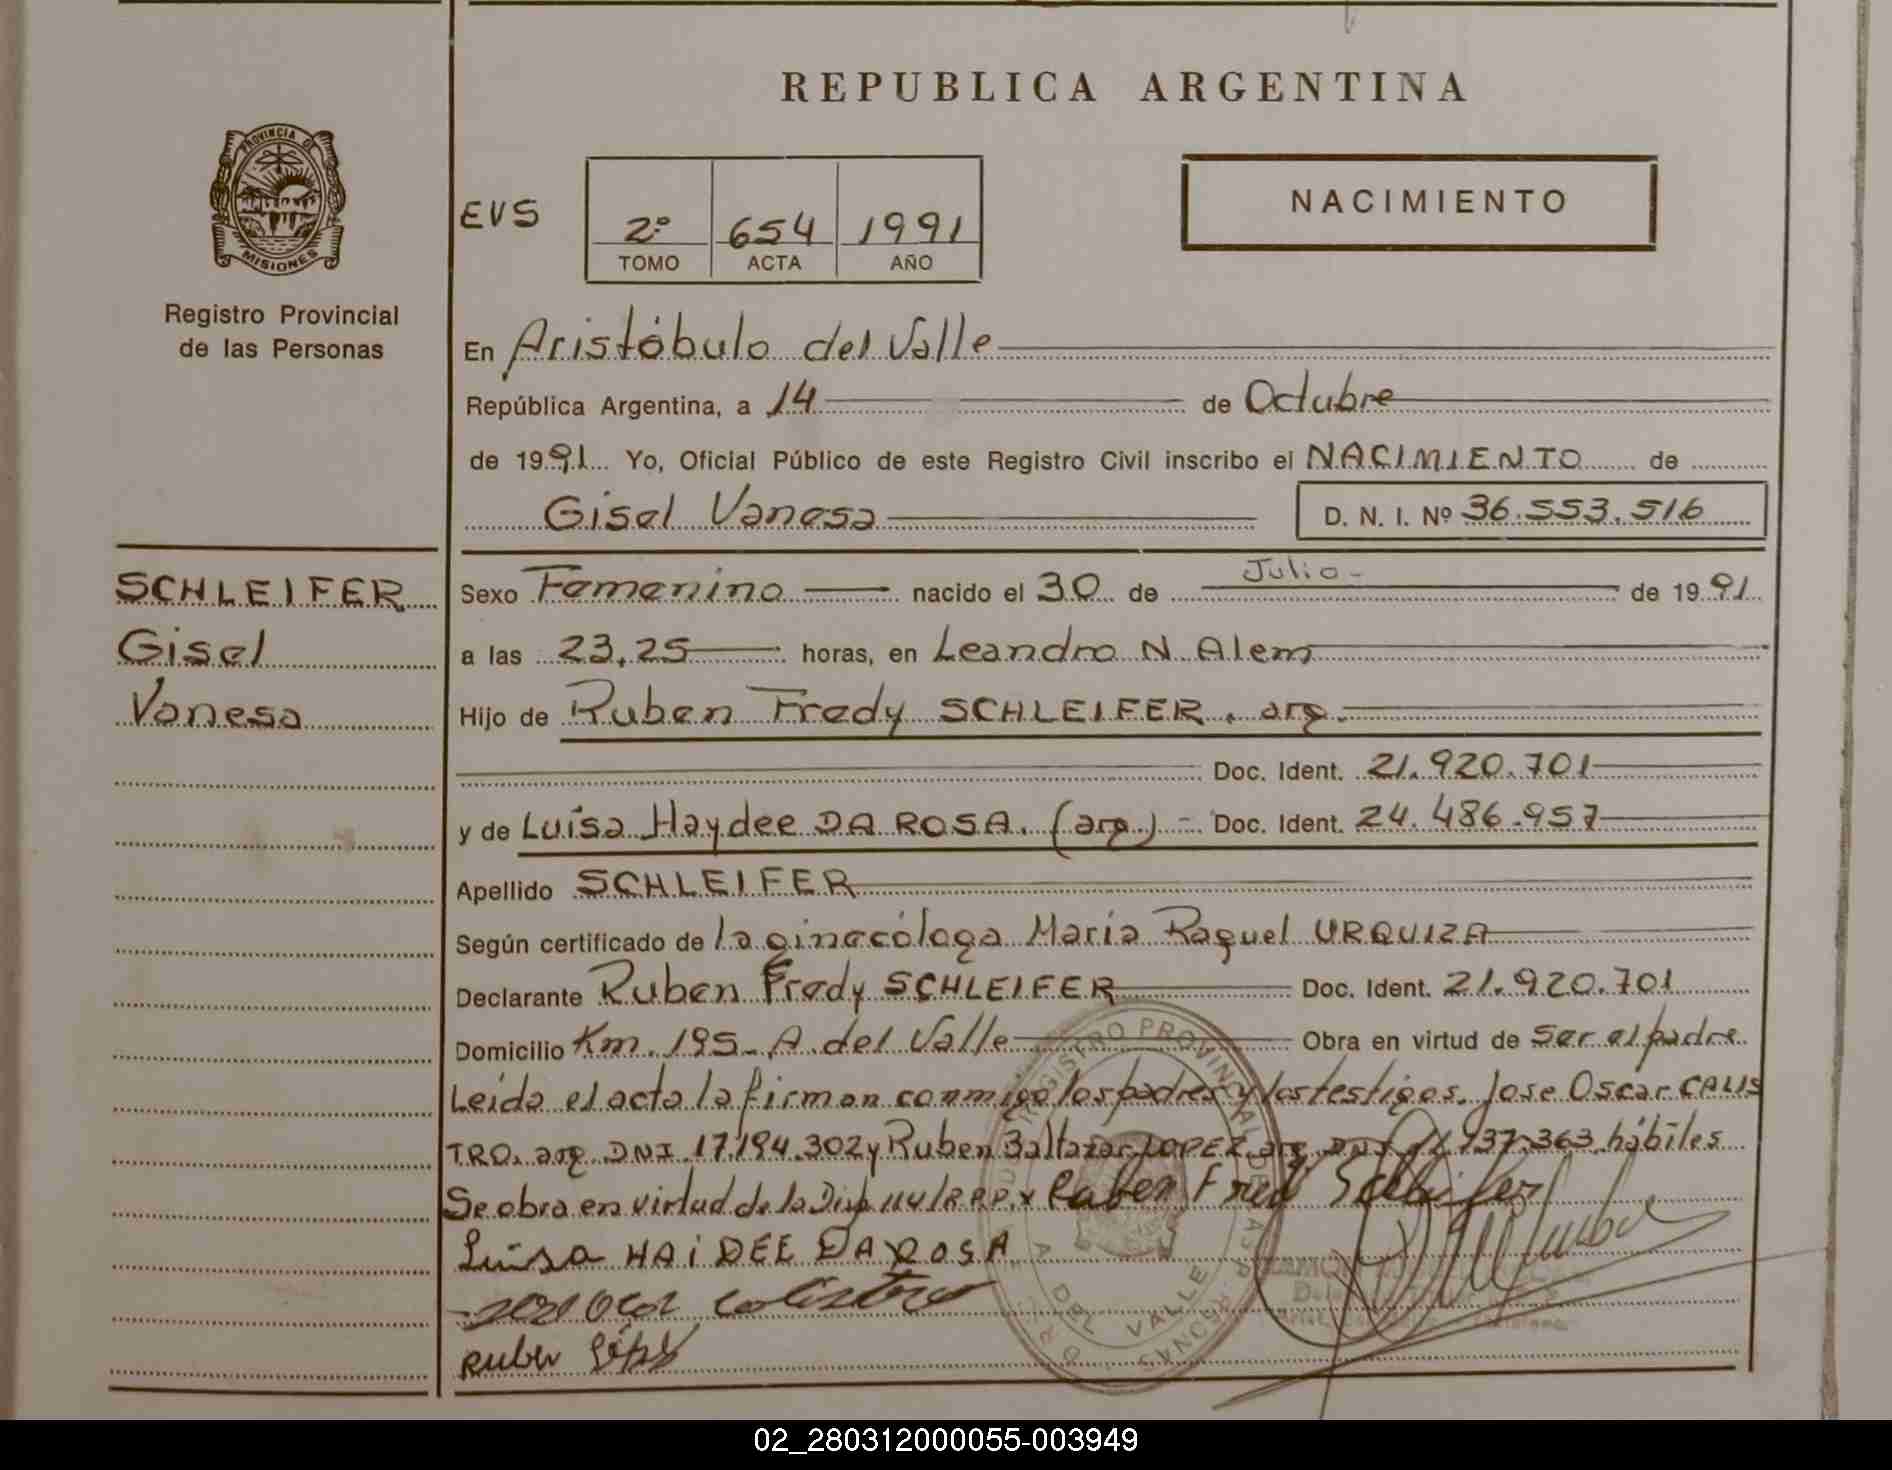 REPUBLICA ARGENTINA
PROVINCIA DE
MISIONES
Registro Provincial
de las Personas
EVS
2º 654 1991
TOMO ACTA AÑO
NACIMIENTO
En Aristóbulo del Valle
República Argentina, a 14 de Octubre
de 1991 Yo, Oficial Público de este Registro Civil inscribo el NACIMIENTO de
Gisel Vanesa D. N. I. Nº 36.553.516
SCHLEIFER
Gisel
Vanesa
Sexo Femenino nacido el 30 de Julio de 1991
a las 23,25 horas, en Leandro N Alem
Hijo de Ruben Fredy SCHLEIFER. arg.
Doc. Ident. 21.920.701
y de Luisa Haydee DA ROSA. (arg.) - Doc. Ident. 24.486.957
Apellido SCHLEIFER
Según certificado de la ginecóloga Maria Raquel URQUIZA
Declarante Ruben Fredy SCHLEIFER Doc. Ident. 21.920.701
Domicilio Km. 195- A del Valle Obra en virtud de Ser el padre
Leida el acta la firman conmigo los padres y los testigos. Jose Oscar CALIS
TRO. arg. DNI. 17.194.302 y Ruben Baltazar LOPEZ arg. DNI 937.363 hábiles
Se obra en virtud de la Disp 114/R.P.P. x Ruben Fredy Schleifer
Luisa HAIDEE DA ROSA
Calistro
Ruben
REGISTRO PROVINCIAL DE LAS PERSONAS
A. DEL VALLE
02_280312000055-003949